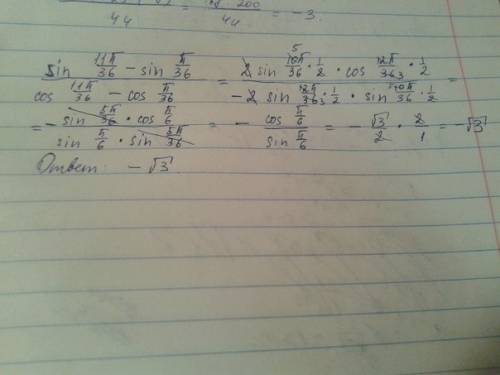 44 44 = -3.
sin 11π/36 - sin π/36 / cos 11π/36 - cos π/36 = 2 sin 10π/36 · 1/2 · cos 12π/36 · 1/2 / -2 sin 12π/36 · 1/2 · sin 10π/36 · 1/2 =
= - sin 5π/36 · cos π/6 / sin π/6 · sin 5π/36 = - cos π/6 / sin π/6 = - √3/2 · 2/1 = -√3
Ответ: - √3